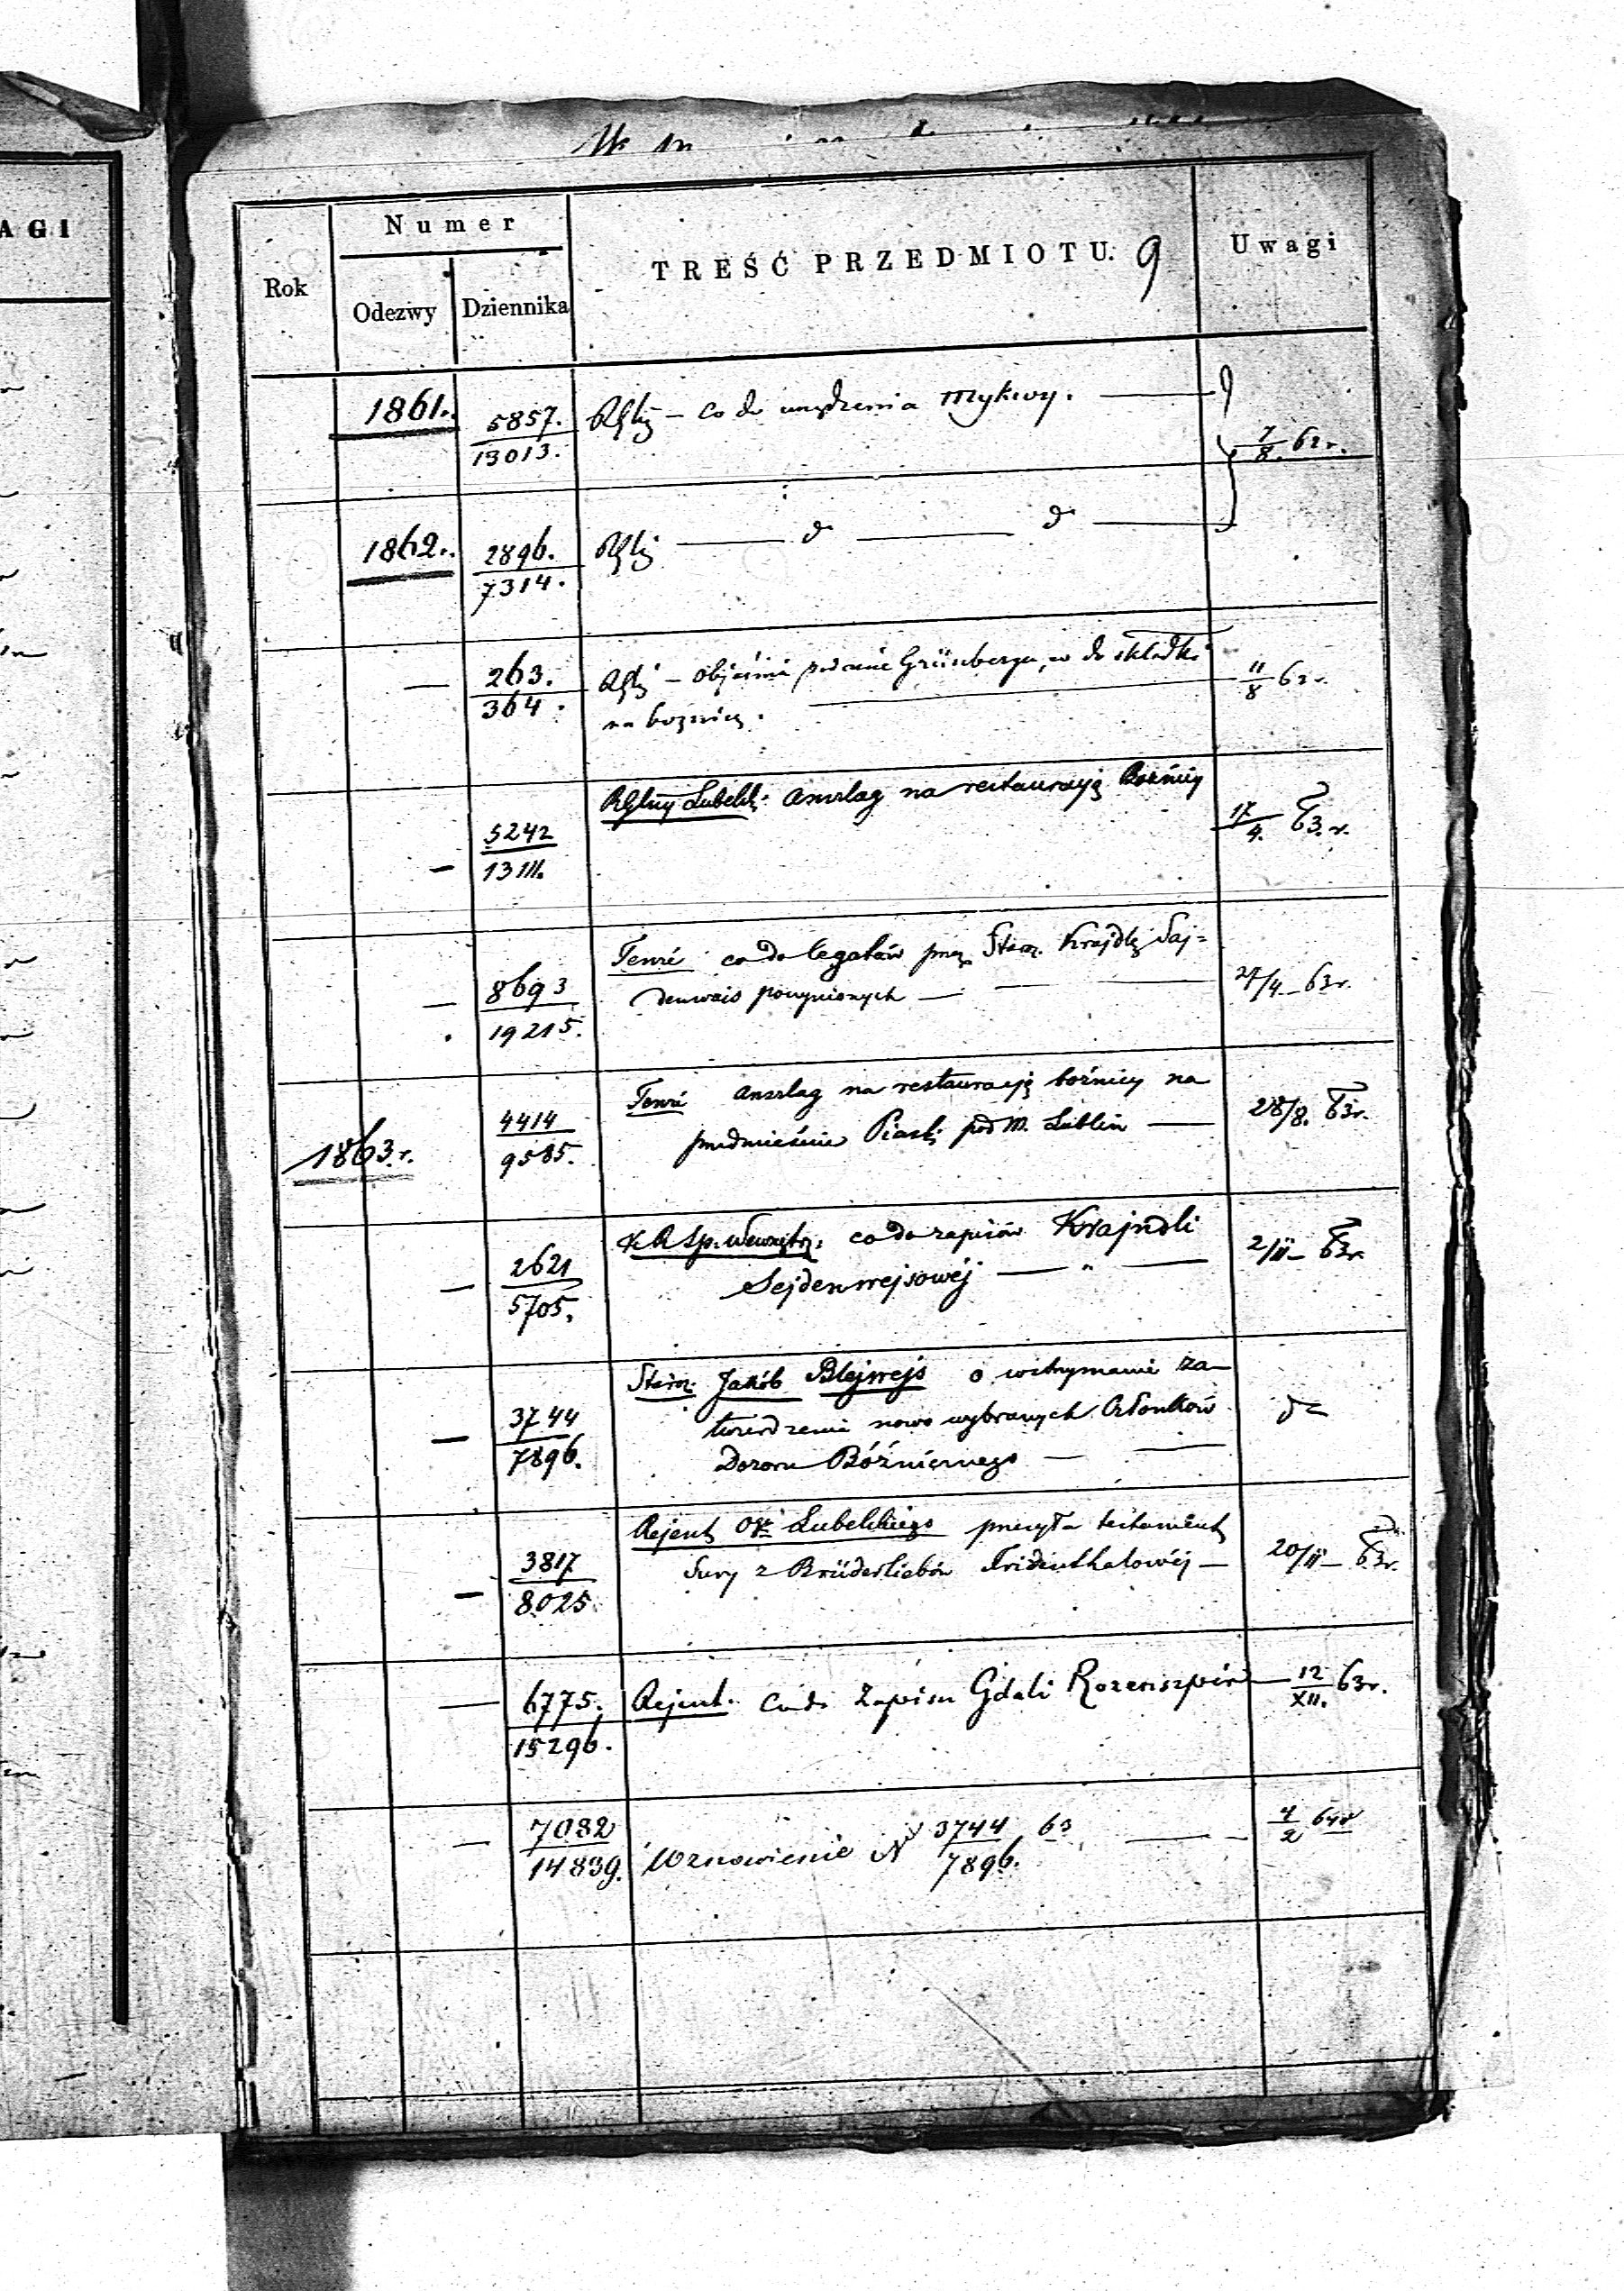 AGI
Numer
TREŚĆ PRZEDMIOTU. 9
Uwagi
Rok
Odezwy
Dziennika
1861.
5857.
13013.
co do urządzenia Mykwy.
7/8 62 r.
1862.
2896.
7314.
263.
364.
objaśnia podanie Grünberga, co do składki
na bożnicę.
11/8 62 r.
5242
13111.
Lubelski anszlag na restauracyę Bożnicy
17/4. 63. r.
8693
19215.
Tenże co do legatów przez Staroz. Krajdlę Saj=
denwais poczynionych
27/4 - 63 r.
1863. r.
4414
9585.
Tenże anszlag na restauracyę bożnicy na
przedmieściu Piaski pod m. Lublin
28/8. 63 r.
2621
5705.
K. R. Sp. Wewnętrz: co do zapisów Krajndli
Sejdenwejsowéj
2/11 - 63 r.
3744
7896.
Staroz. Jakób Blejwejs o wstrzymanie za-
twierdzenia nowo wybranych Członków
Dozoru Bóżnicznego
3817
8025.
Rejent Lubelskiego przesyła testament
Sury z Brüderliebów Fridenthalowéj
20/11 - 63 r.
6775.
15296.
Rejent. Co do Zapisu Gdali Rozenszpir
12/XII. 63 r.
7082
14839.
Wznowienie N 3744/7896. 63
4/2 64 r